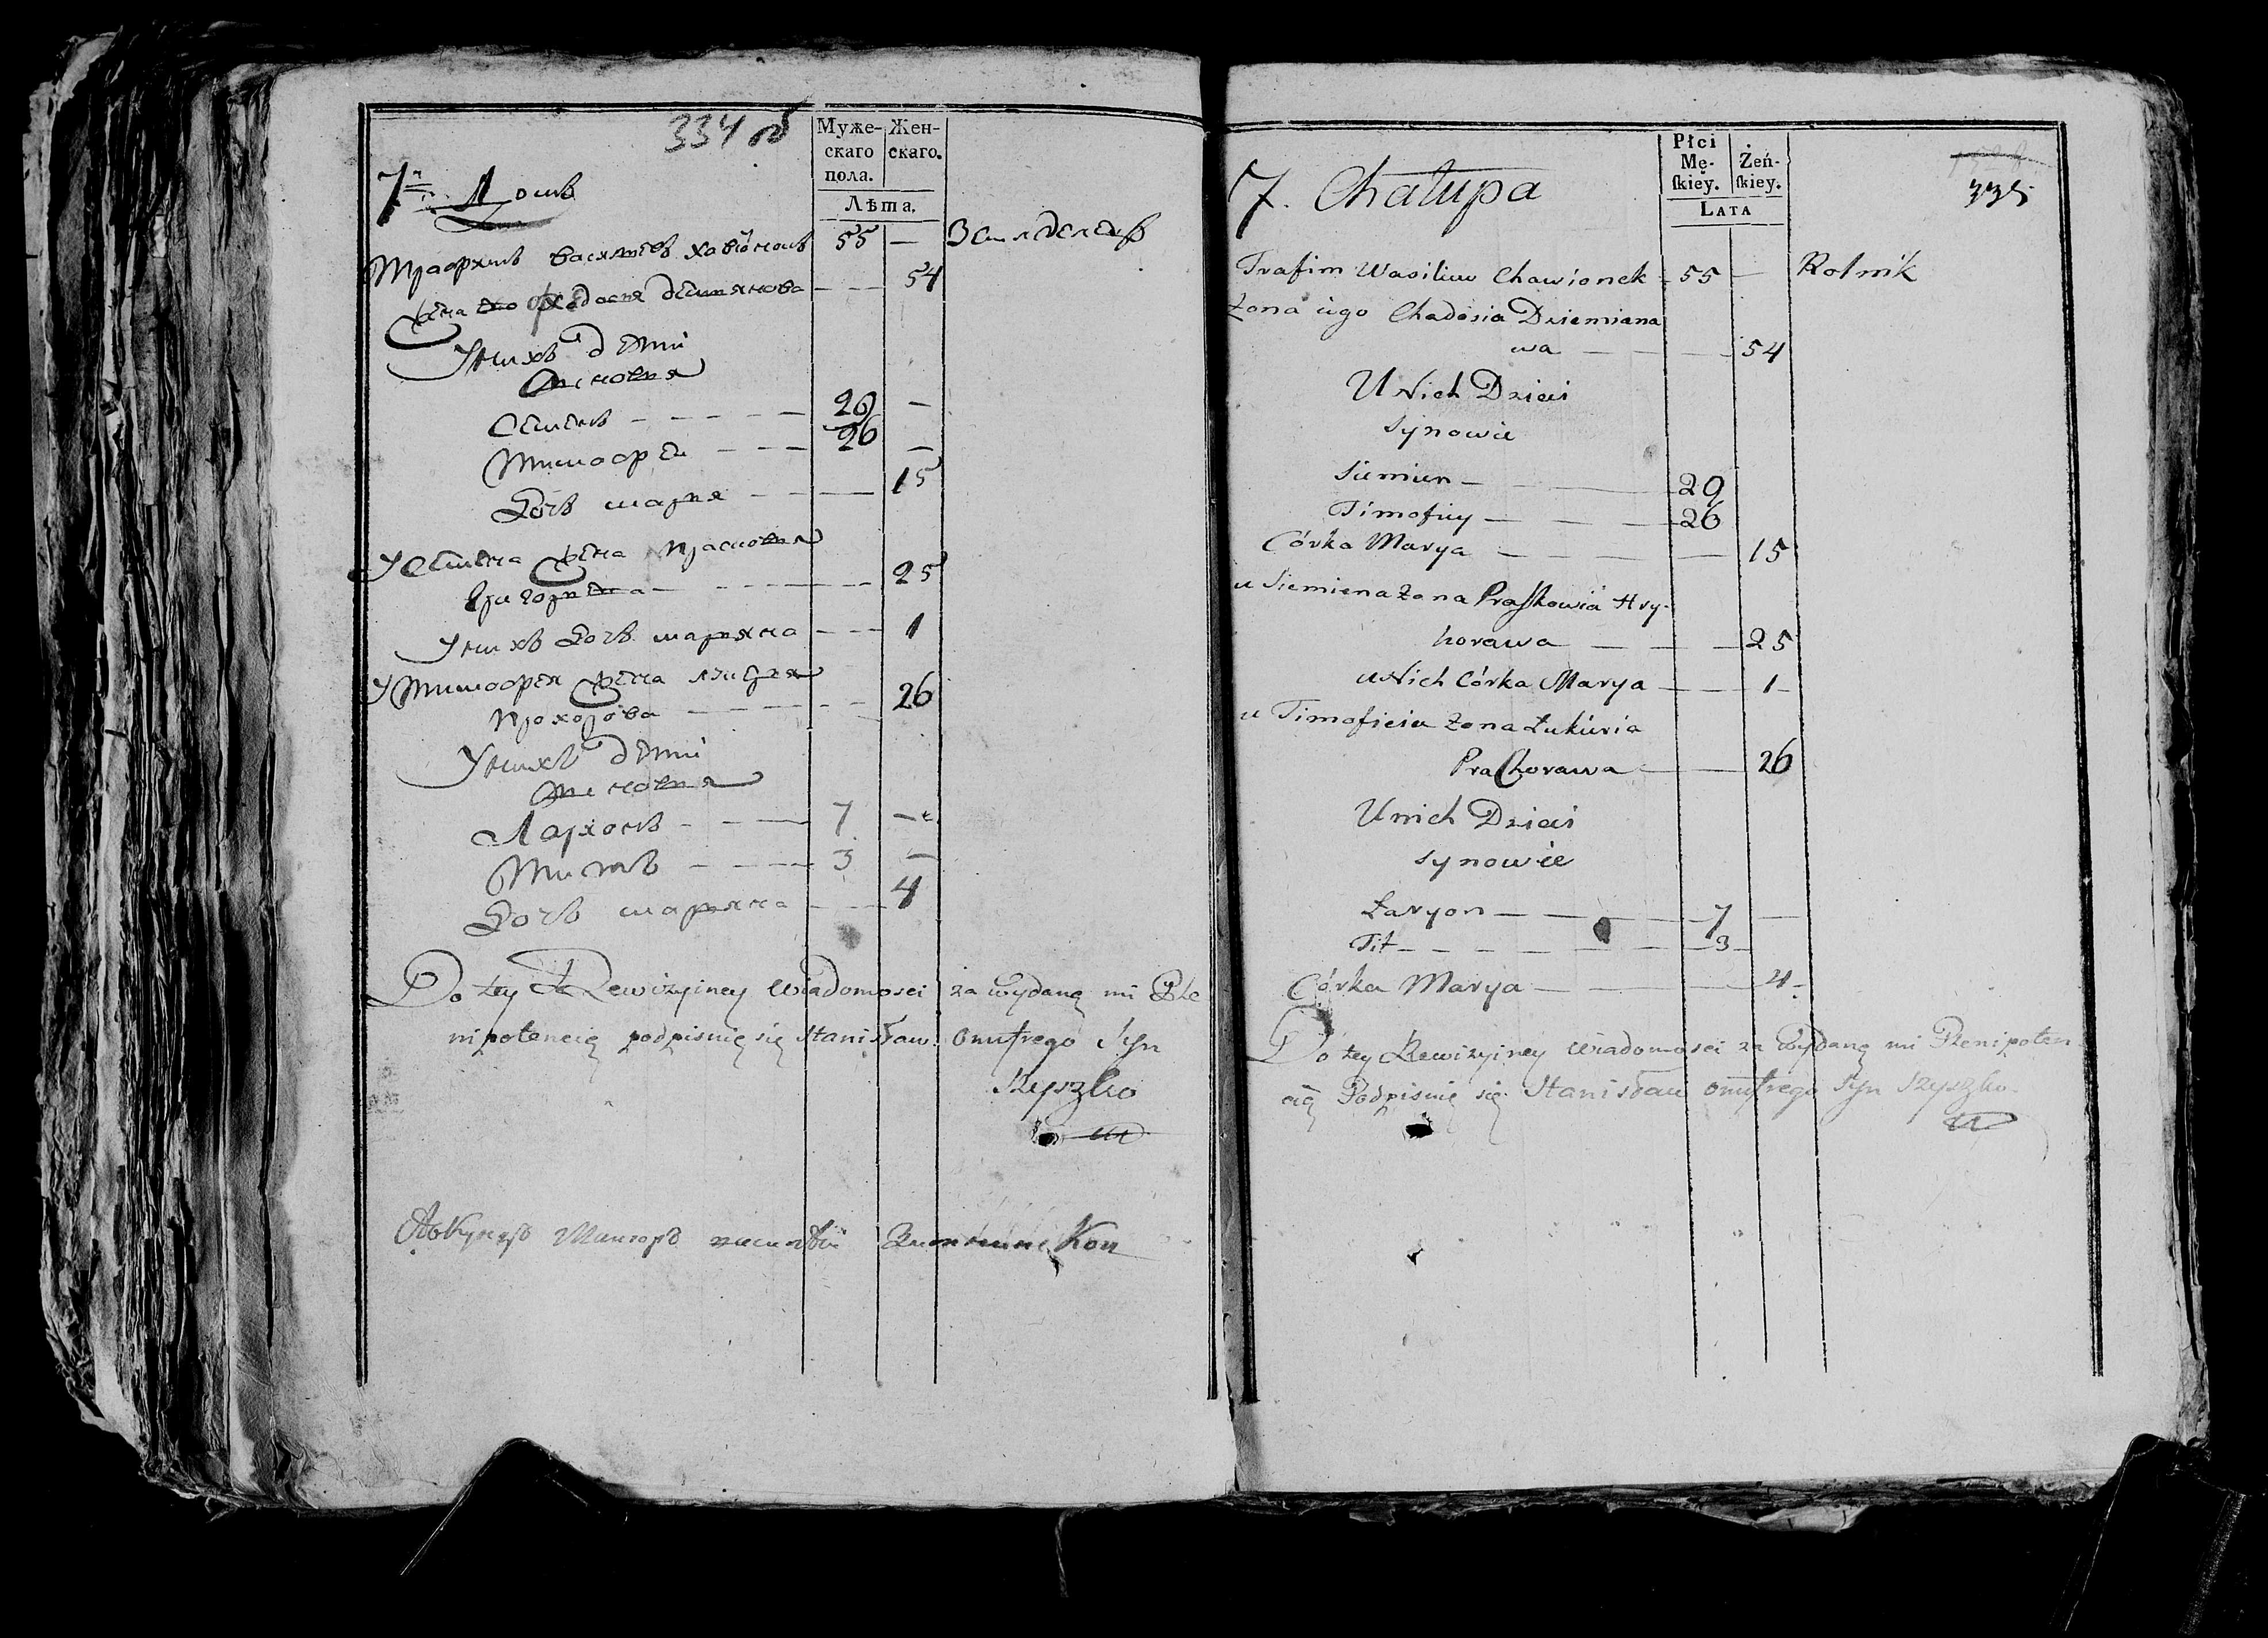 334 об
Муже-
скаго
пола.
Жен-
скаго.
Лѣта.
7й Домъ
Трафимъ Васильевъ Хавіонокъ 55 — Земледелецъ
Жена его Федосья Демьянова — — 54
У нихъ дети
Сыновья
Семенъ — — — — 29 —
Тимофей — — — 26 —
Дочь Марья — — — 15
У Семена жена Прасковья
Григорьева — — — — 25
У нихъ дочь Марьяна — — 1
У Тимофея жена Лукерья
Прохорова — — — — 26
У нихъ дети
Сыновья
Ларионъ — — — 7 —
Титъ — — — 3 —
Дочь Марьяна — — 4
Do tey Rewizyiney wiadomosci za wydaną mi Ple
nipotencią podpisuię się Stanisław Onufrego Syn
Szyszko
335
Płci
Mę-
ſkiey.
Żeń-
ſkiey.
LATA
7. Chałupa
Trafim Wasiliew Chawionek 55 — Rolnik
Żona iego Chadosia Dziemiana
wa — — — 54
U Nich Dzieci
Synowie
Siemien — — 29
Timofiey — — — 26
Córka Marya — — — — 15
u Siemiena żona Praſkowia Hry-
horawa — — — 25
u Nich Córka Marya — — 1 —
u Timofieia żona Łukieria
Prachorawa — — 26
U nich Dzieci
synowie
Łaryon — — — — 7 —
Tit — — — — — — 3 —
Córka Marya — — — 4 —
Do tey Rewizyiney wiadomosci za wydaną mi Plenipoten
cią Podpisuię się Stanisław Onufrego Syn Szyszko